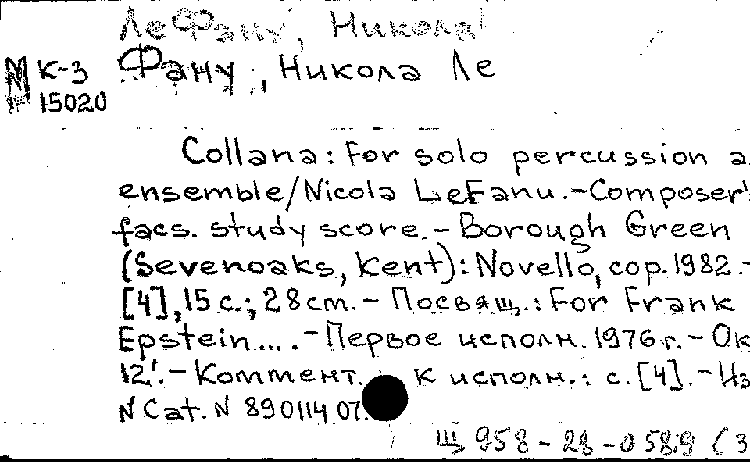 ЛеФану, Никола
N К-3 Фану, Никола Ле
15020
Collana: For solo percussion a
ensemble/Nicola LeFanu.-Composer's
facs. study score.- Borough Green
(Sevenoaks, Kent): Novello, cop. 1982.-
[4], 15 с.; 28 cm.- Посвящ.: For Frank
Epstein... .-Первое исполн. 1976 г.- Ок
12'.-Коммент. к исполн.: с. [4].- Из
N Cat. N 890114 07.
Щ 958-28-0589 (3